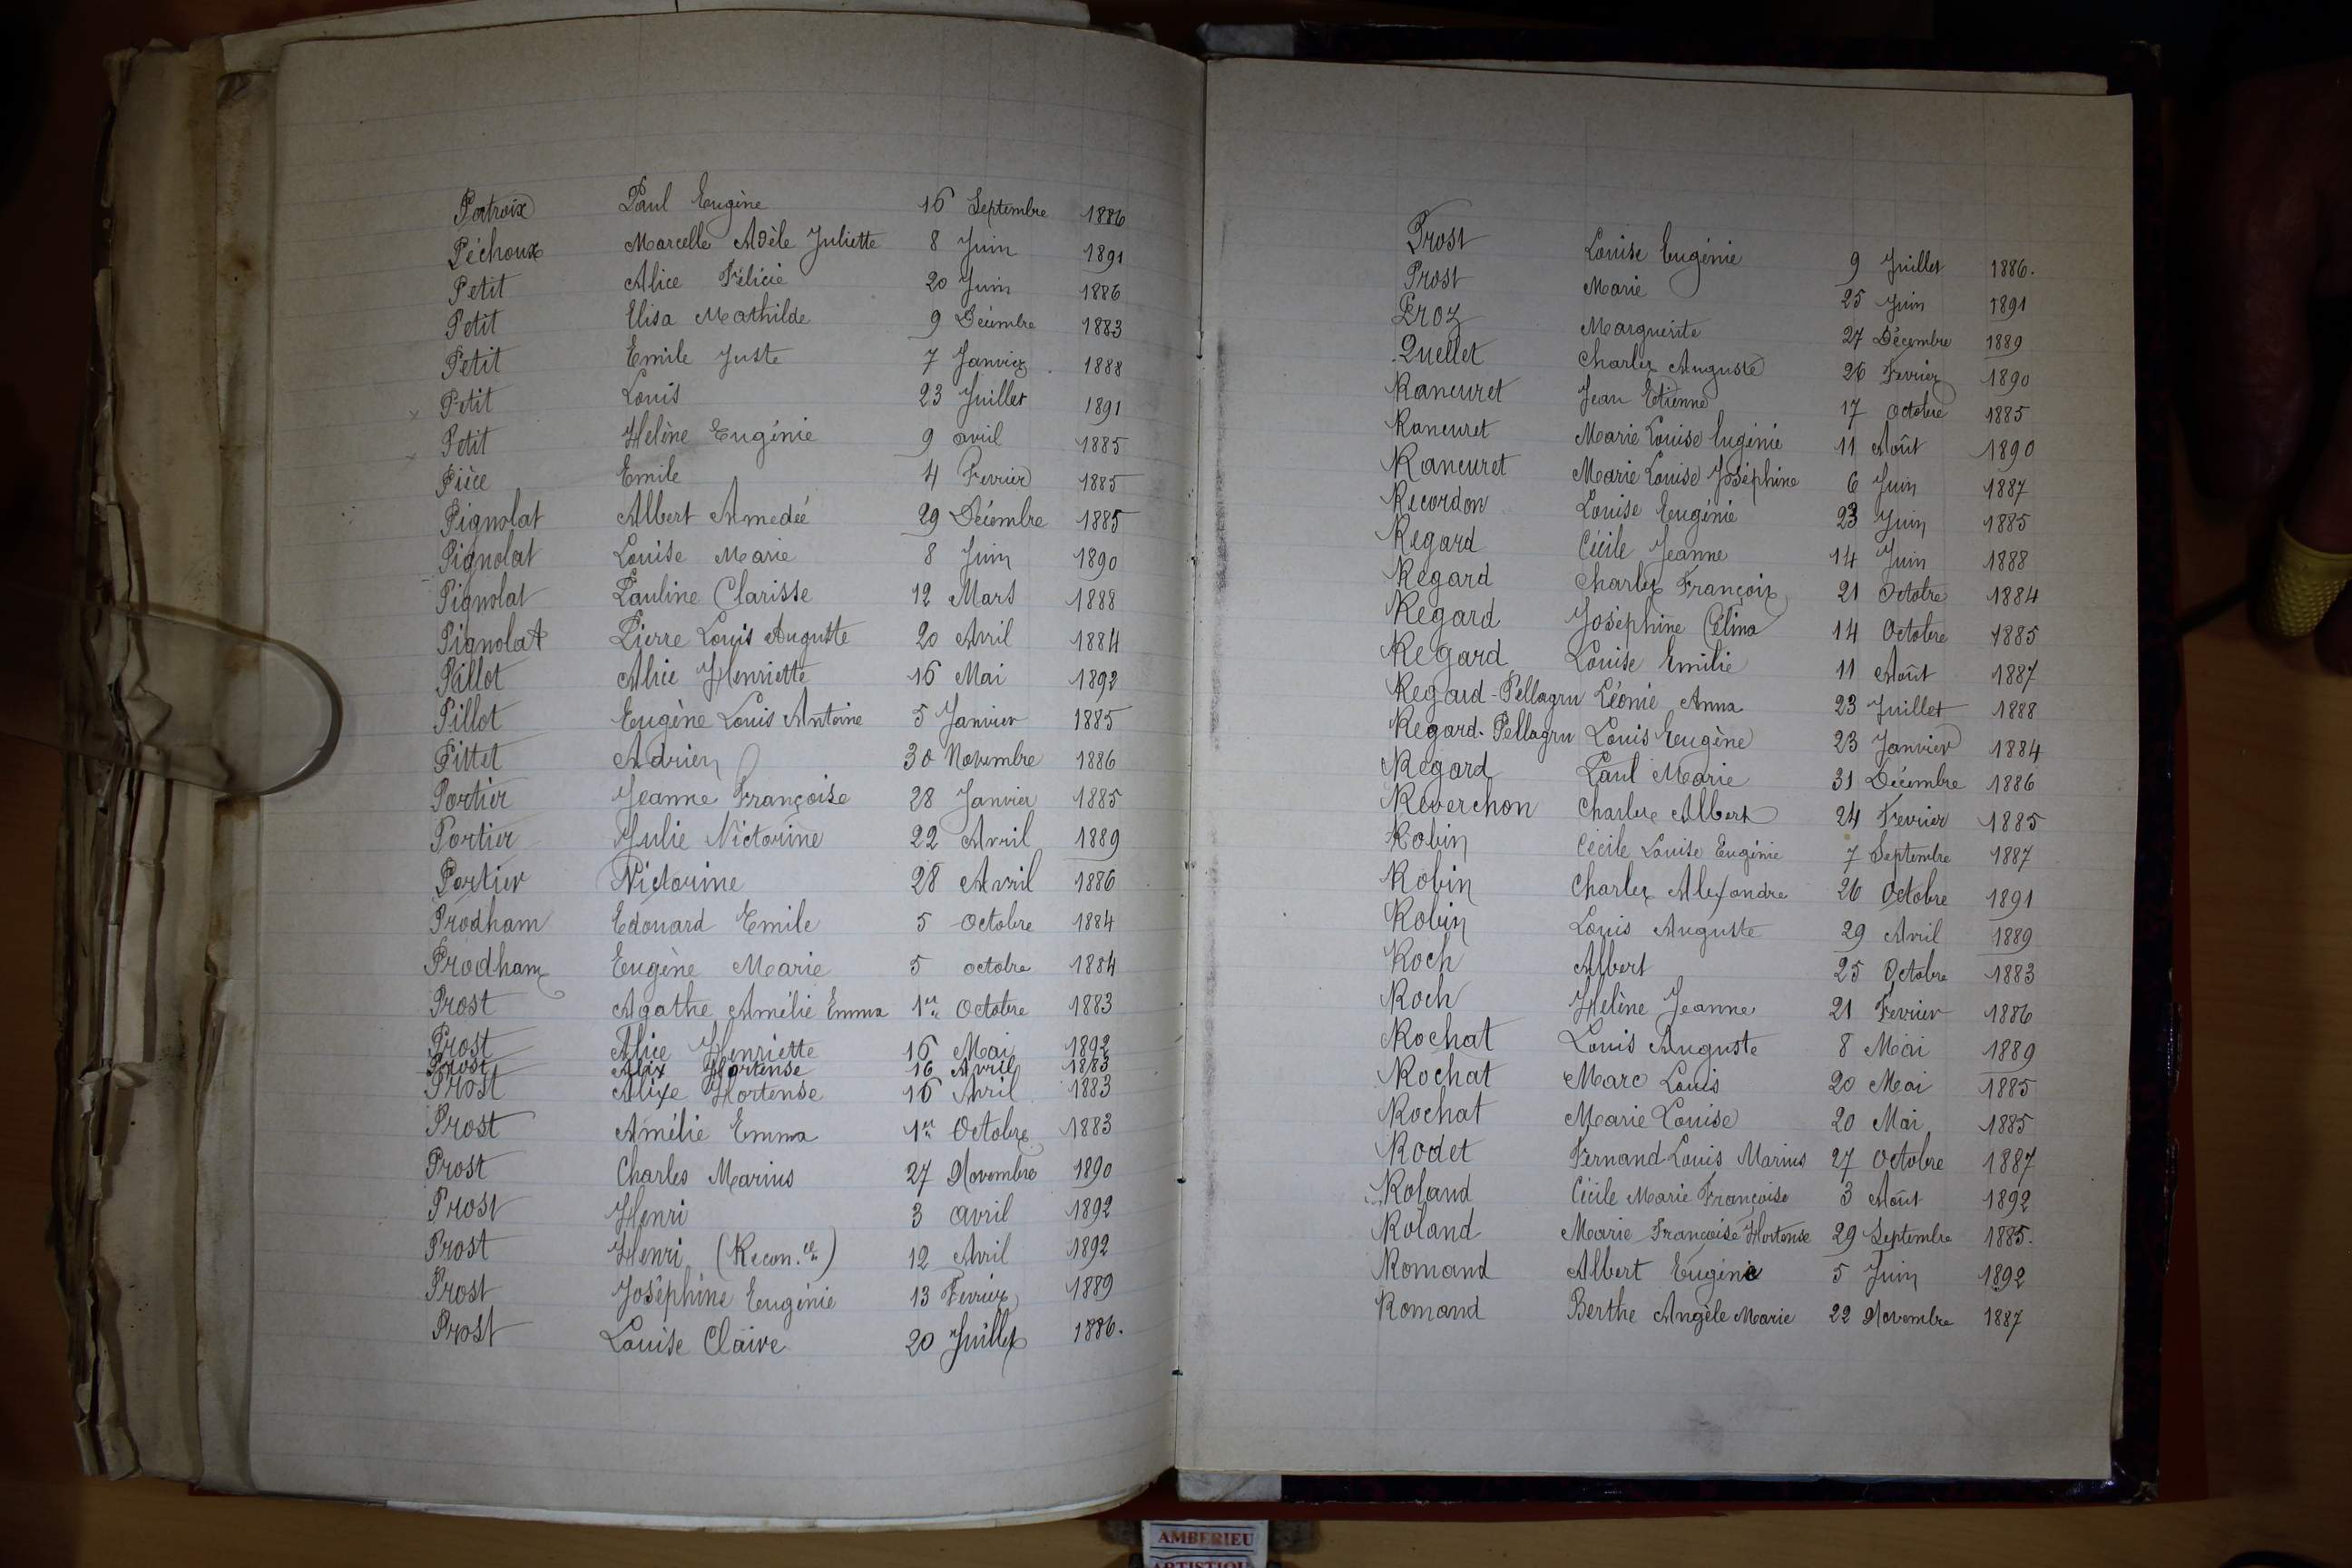 Patroix Paul Eugène 16 Septembre 1886
Péchoux Marcelle Adèle Juliette 8 Juin 1891
Petit Alice Félicie 20 Juin 1886
Petit Elisa Mathilde 9 Décembre 1883
Petit Emile Juste 7 Janvier 1888
x Petit Louis 23 Juillet 1891
x Petit Helène Eugénie 9 avril 1885
Pièce Emile 4 Fevrier 1885
Pignolat Albert Amedée 29 Décembre 1885
Pignolat Louise Marie 8 Juin 1890
Pignolat Pauline Clarisse 12 Mars 1888
Pignolat Pierre Louis Auguste 20 Avril 1884
Pillot Alice Henriette 16 Mai 1892
Pillot Eugène Louis Antoine 5 Janvier 1885
Pittet Adrien 30 Novembre 1886
Portier Jeanne Françoise 28 Janvier 1885
Portier Julie Victorine 22 Avril 1889
Portier Victorine 28 Avril 1886
Prodham Edouard Emile 5 Octobre 1884
Prodham Eugène Marie 5 octobre 1884
Prost Agathe Amélie Emma 1er Octobre 1883
Prost Alice Henriette 16 Mai 1892
Prost Alix Hortense 16 Avril 1883
Prost Alixe Hortense 16 Avril 1883
Prost Amélie Emma 1er Octobre 1883
Prost Charles Marius 27 Novembre 1890
Prost Henri 3 avril 1892
Prost Henri (Recon.ce) 12 Avril 1892
Prost Joséphine Eugénie 13 Fevrier 1889
Prost Louise Claire 20 Juillet 1886.
Prost Louise Eugénie 9 Juillet 1886.
Prost Marie 25 Juin 1891
Proz Marguerite 27 Décembre 1889
Quellet Charles Auguste 26 Fevrier 1890
Rancuret Jean Etienne 17 Octobre 1885
Rancuret Marie Louise Eugénie 11 Août 1890
Rancuret Marie Louise Joséphine 6 Juin 1887
Recordon Louise Eugénie 23 Juin 1885
Regard Cécile Jeanne 14 Juin 1888
Regard Charles François 21 Octobre 1884
Regard Joséphine Célina 14 Octobre 1885
Regard Louise Emilie 11 Août 1887
Regard-Pellagru Léonie Anna 23 Juillet 1888
Regard-Pellagru Louis Eugène 23 Janvier 1884
Regard Paul Marie 31 Décembre 1886
Reverchon Charles Albert 24 Fevrier 1885
Robin Cécile Louise Eugénie 7 Septembre 1887
Robin Charles Alexandre 26 Octobre 1891
Robin Louis Auguste 29 Avril 1889
Roch Albert 25 Octobre 1883
Roch Helène Jeanne 21 Fevrier 1886
Rochat Louis Auguste 8 Mai 1889
Rochat Marc Louis 20 Mai 1885
Rochat Marie Louise 20 Mai 1885
Rodet Fernand Louis Marius 27 Octobre 1887
Roland Cécile Marie Françoise 3 Août 1892
Roland Marie Françoise Hortense 29 Septembre 1885.
Romand Albert Eugène 5 Juin 1892
Romand Berthe Angèle Marie 22 Novembre 1887
AMBERIEU
ARTISTIQU